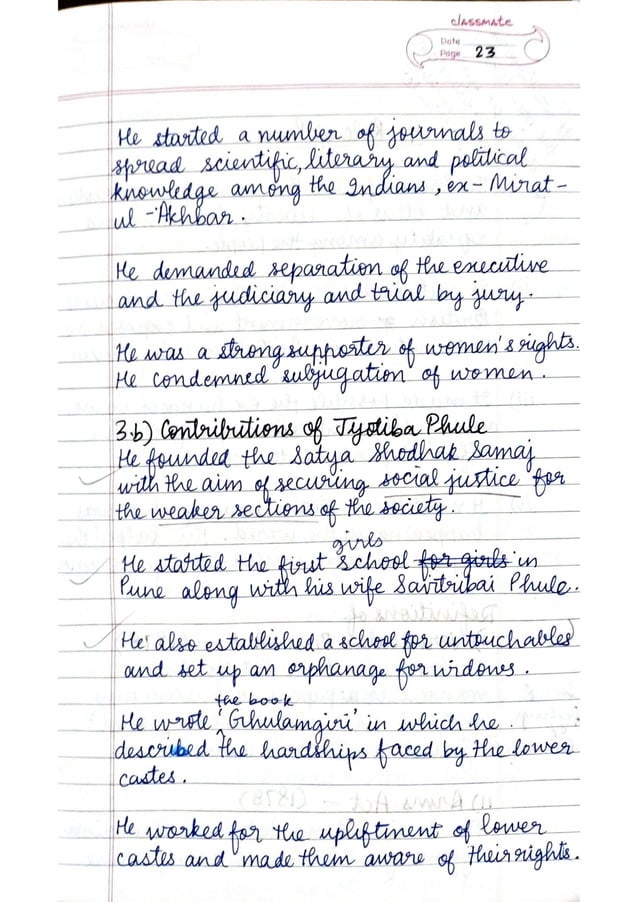 classmate
Date
Page 23
He started a number of journals to
spread scientific, literary and political
knowledge among the Indians, ex- Mirat-
ul-Akhbar.
He demanded separation of the executive
and the judiciary and trial by jury.
He was a strong supporter of women's rights.
He condemned subjugation of women.
3.b) Contributions of Jyotiba Phule
He founded the Satya Shodhak Samaj
with the aim of securing social justice for
the weaker sections of the society.
girls
He started the first school for girls in
Pune along with his wife Savitribai Phule.
He also established a school for untouchables
and set up an orphanage for widows.
the book
He wrote 'Ghulamgiri' in which he
described the hardships faced by the lower
castes.
He worked for the upliftment of lower
castes and made them aware of their rights.